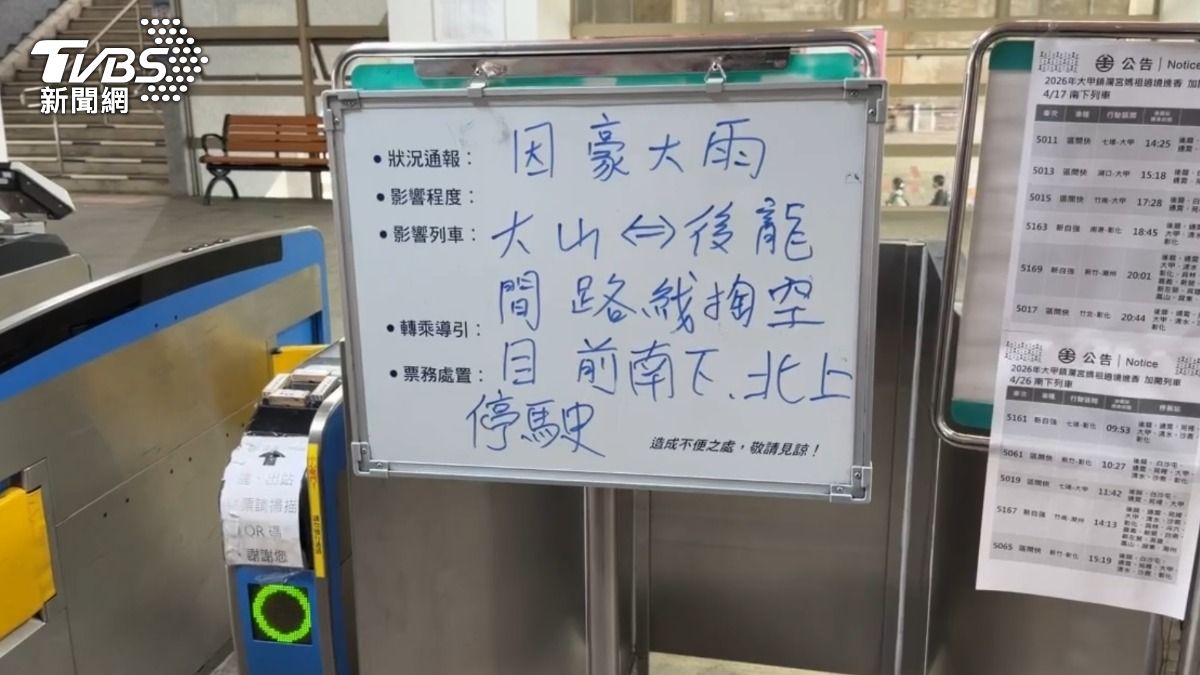 TVBS
新聞網
• 狀況通報：因豪大雨
• 影響程度：
• 影響列車：大山⇔後龍
間路線掏空
• 轉乘導引：
• 票務處置：目前南下、北上
停駛
造成不便之處，敬請見諒！
進、出站
票請掃描
QR碼
謝謝您
公告 | Notice
2026年大甲鎮瀾宮媽祖遶境進香 加開列車
4/17 南下列車
車次 車種 行駛區間
5011 區間快 七堵-大甲 14:25
5013 區間快 湖口-大甲 15:18
5015 區間快 竹南-大甲 17:28
5163 新自強 南港-彰化 18:45
5169 新自強 新竹-潮州 20:01
5017 區間快 竹北-彰化 20:44
公告 | Notice
2026年大甲鎮瀾宮媽祖遶境進香 加開列車
4/26 南下列車
車次 車種 行駛區間 停靠站
5161 新自強 七堵-彰化 09:53
5061 區間快 新竹-彰化 10:27
5019 區間快 七堵-大甲 11:42
5167 新自強 竹南-潮州 14:13
5065 區間快 新竹-彰化 15:19